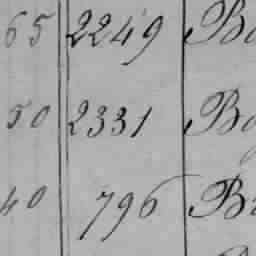 65 2249 Bo
50 2331 Bo
40 796 Br